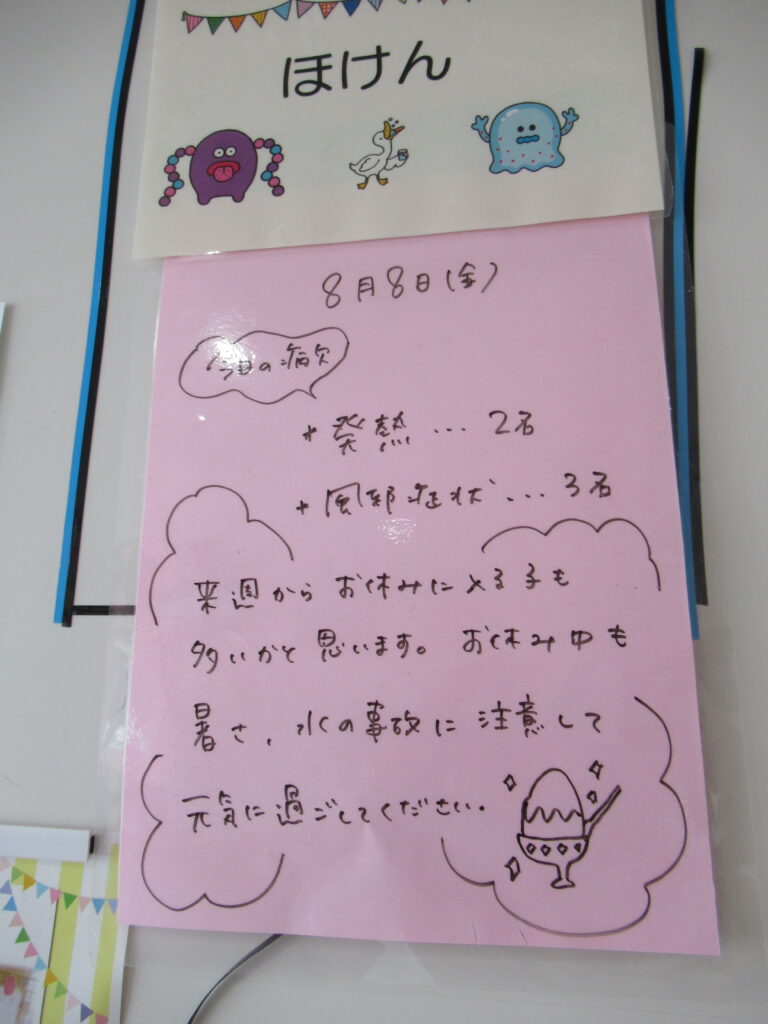 ほけん
8月8日(金)
今日の病欠
+ 発熱 ... 2名
+ 風邪症状 ... 3名
来週からお休みに入る子も
多いかと思います。お休み中も
暑さ、水の事故に注意して
元気に過ごしてください。